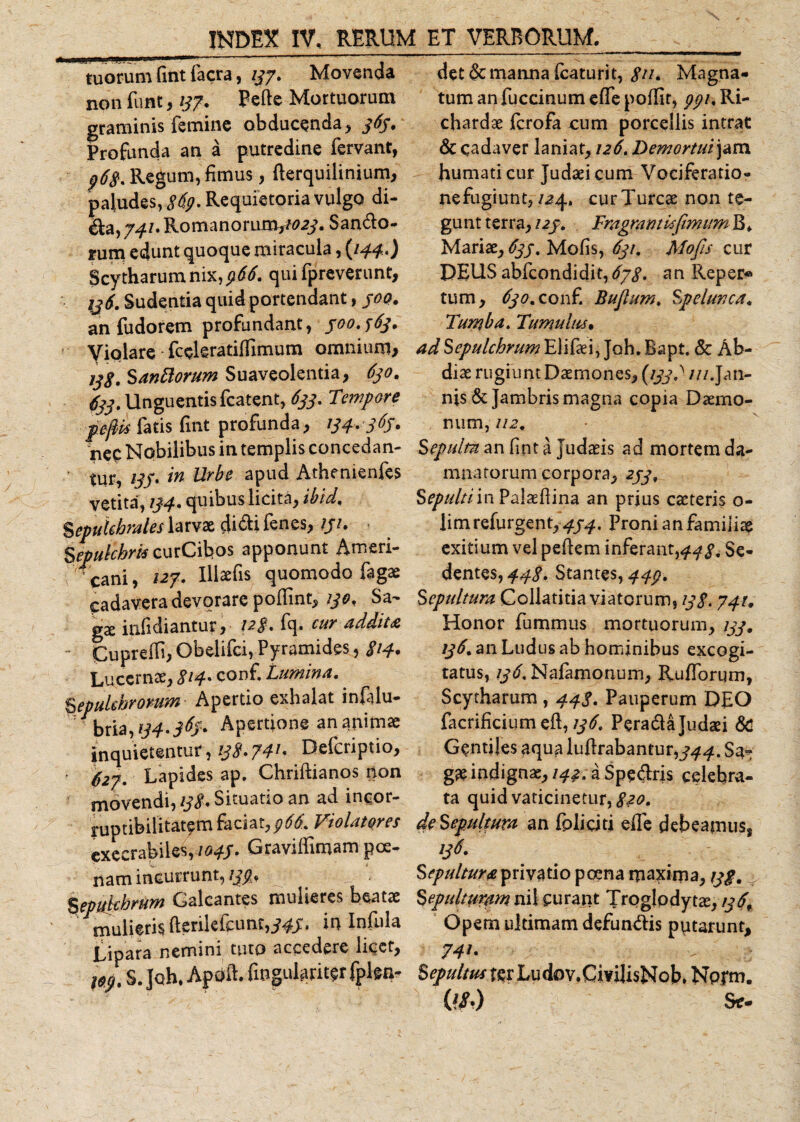 INDEX IV. RERUM ET VERBORUM.
tuorum ſint ſacra, 137. Movenda
non ſunt, 137. Peſte Mortuorum
graminis ſemine obducenda, 365.
Profunda an à putredine ſervant,
968. Regum, fimus, ſterquilinium,
paludes, 869. Requietoria vulgo di-
cta, 741. Romanorum, 1023. Sancto-
rum edunt quoque miracula, (144.)
Scytharum nix, 966. qui ſpreverunt,
136. Sudentia quid portendant, 500.
an ſudorem profundant, 500. 563.
Violare ſceleratiſſimum omnium,
138. Sanctorum Suaveolentia, 630.
633. Unguentis ſcatent, 633. Tempore
peſtis ſatis ſint profunda, 134. 365.
nec Nobilibus in templis concedan-
tur, 135. in Urbe apud Athenienſes
vetita, 134. quibus licita, ibid.
Sepulchrales larvæ dicti ſenes, 151.
Sepulchris cur Cibos apponunt Ameri-
cani, 127. Illæſis quomodo ſagæ
cadavera devorare poſſint, 130. Sa-
gæ inſidiantur, 128. ſq. cur addita
Cupreſſi, Obeliſci, Pyramides, 814.
Lucernæ, 814. conf. Lumina.
Sepulchrorum Apertio exhalat inſalu-
bria, 134. 365. Apertione an animæ
inquietentur, 138. 741. Deſcriptio,
627. Lapides ap. Chriſtianos non
movendi, 138. Situatio an ad incor-
ruptibilitatem faciat, 966. Violatores
execrabiles, 1045. Graviſſimam pœ-
nam incurrunt, 139.
Sepulchrum Galcantes mulieres beatæ
mulieris ſterileſcunt, 345. in Inſula
Lipara nemini tuto accedere licet,
109. S. Joh. Apoſt. ſingulariter ſplen-
det & manna ſcaturit, 811. Magna-
tum an ſuccinum eſſe poſſit, 991. Ri-
chardæ ſcrofa cum porcellis intrat
& cadaver laniat, 126. Demortui jam
humati cur Judæi cum Vociferatio-
ne fugiunt, 124. cur Turcæ non te-
gunt terra, 125. Fragrantiſſimum B.
Mariæ, 635. Moſis, 631. Moſis cur
DEUS abſcondidit, 678. an Reper-
tum, 630. conf. Buſtum. Spelunca.
Tumba. Tumulus.
ad Sepulchrum Eliſæi, Joh. Bapt. & Ab-
diæ rugiunt Dæmones, (133.) 111. Jan-
nis & Jambris magna copia Dæmo-
num, 112.
Sepulta an ſint à Judæis ad mortem da-
mnatorum corpora, 253.
Sepulti in Palæſtina an prius cæteris o-
lim reſurgent, 454. Proni an familiæ
exitium vel peſtem inferant, 448. Se-
dentes, 448. Stantes, 449.
Sepultura Collatitia viatorum, 138. 741.
Honor ſummus mortuorum, 133.
136. an Ludus ab hominibus excogi-
tatus, 136. Naſamonum, Ruſſorum,
Scytharum, 448. Pauperum DEO
ſacrificium eſt, 136. Peracta Judæi &
Gentiles aqua luſtrabantur, 344. Sa-
gæ indignæ, 142. à Spectris celebra-
ta quid vaticinetur, 820.
de Sepultura an ſoliciti eſſe debeamus,
136.
Sepulturæ privatio pœna maxima, 138.
Sepulturam nil curant Troglodytæ, 136.
Opem ultimam defunctis putarunt,
741.
Sepultus ter Ludov. Civilis Nob. Norm.
(18.)
Se-